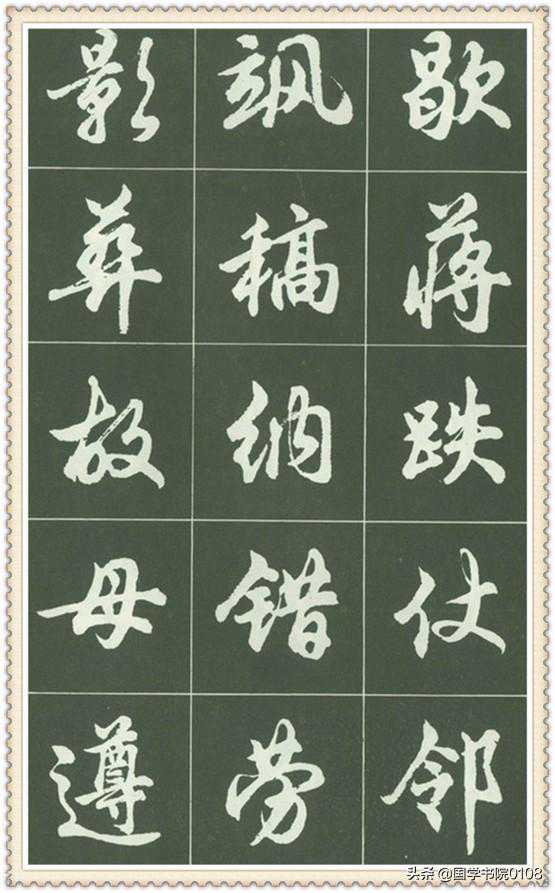 歇蒋跌仗邻
飒稿纳错劳
影葬故母遵
头条 @国学书院0108